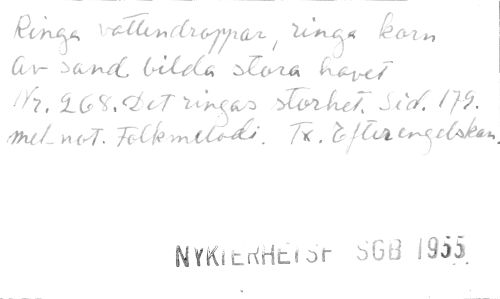 Ringa vattendroppar, ringa korn
av sand bilda stora havet
Nr. 268. Det ringas storhet. Sid. 179.
mel. not. Folkmelodi. Tx. Efter engelskan.
NYKTERHETSF SGB 1955